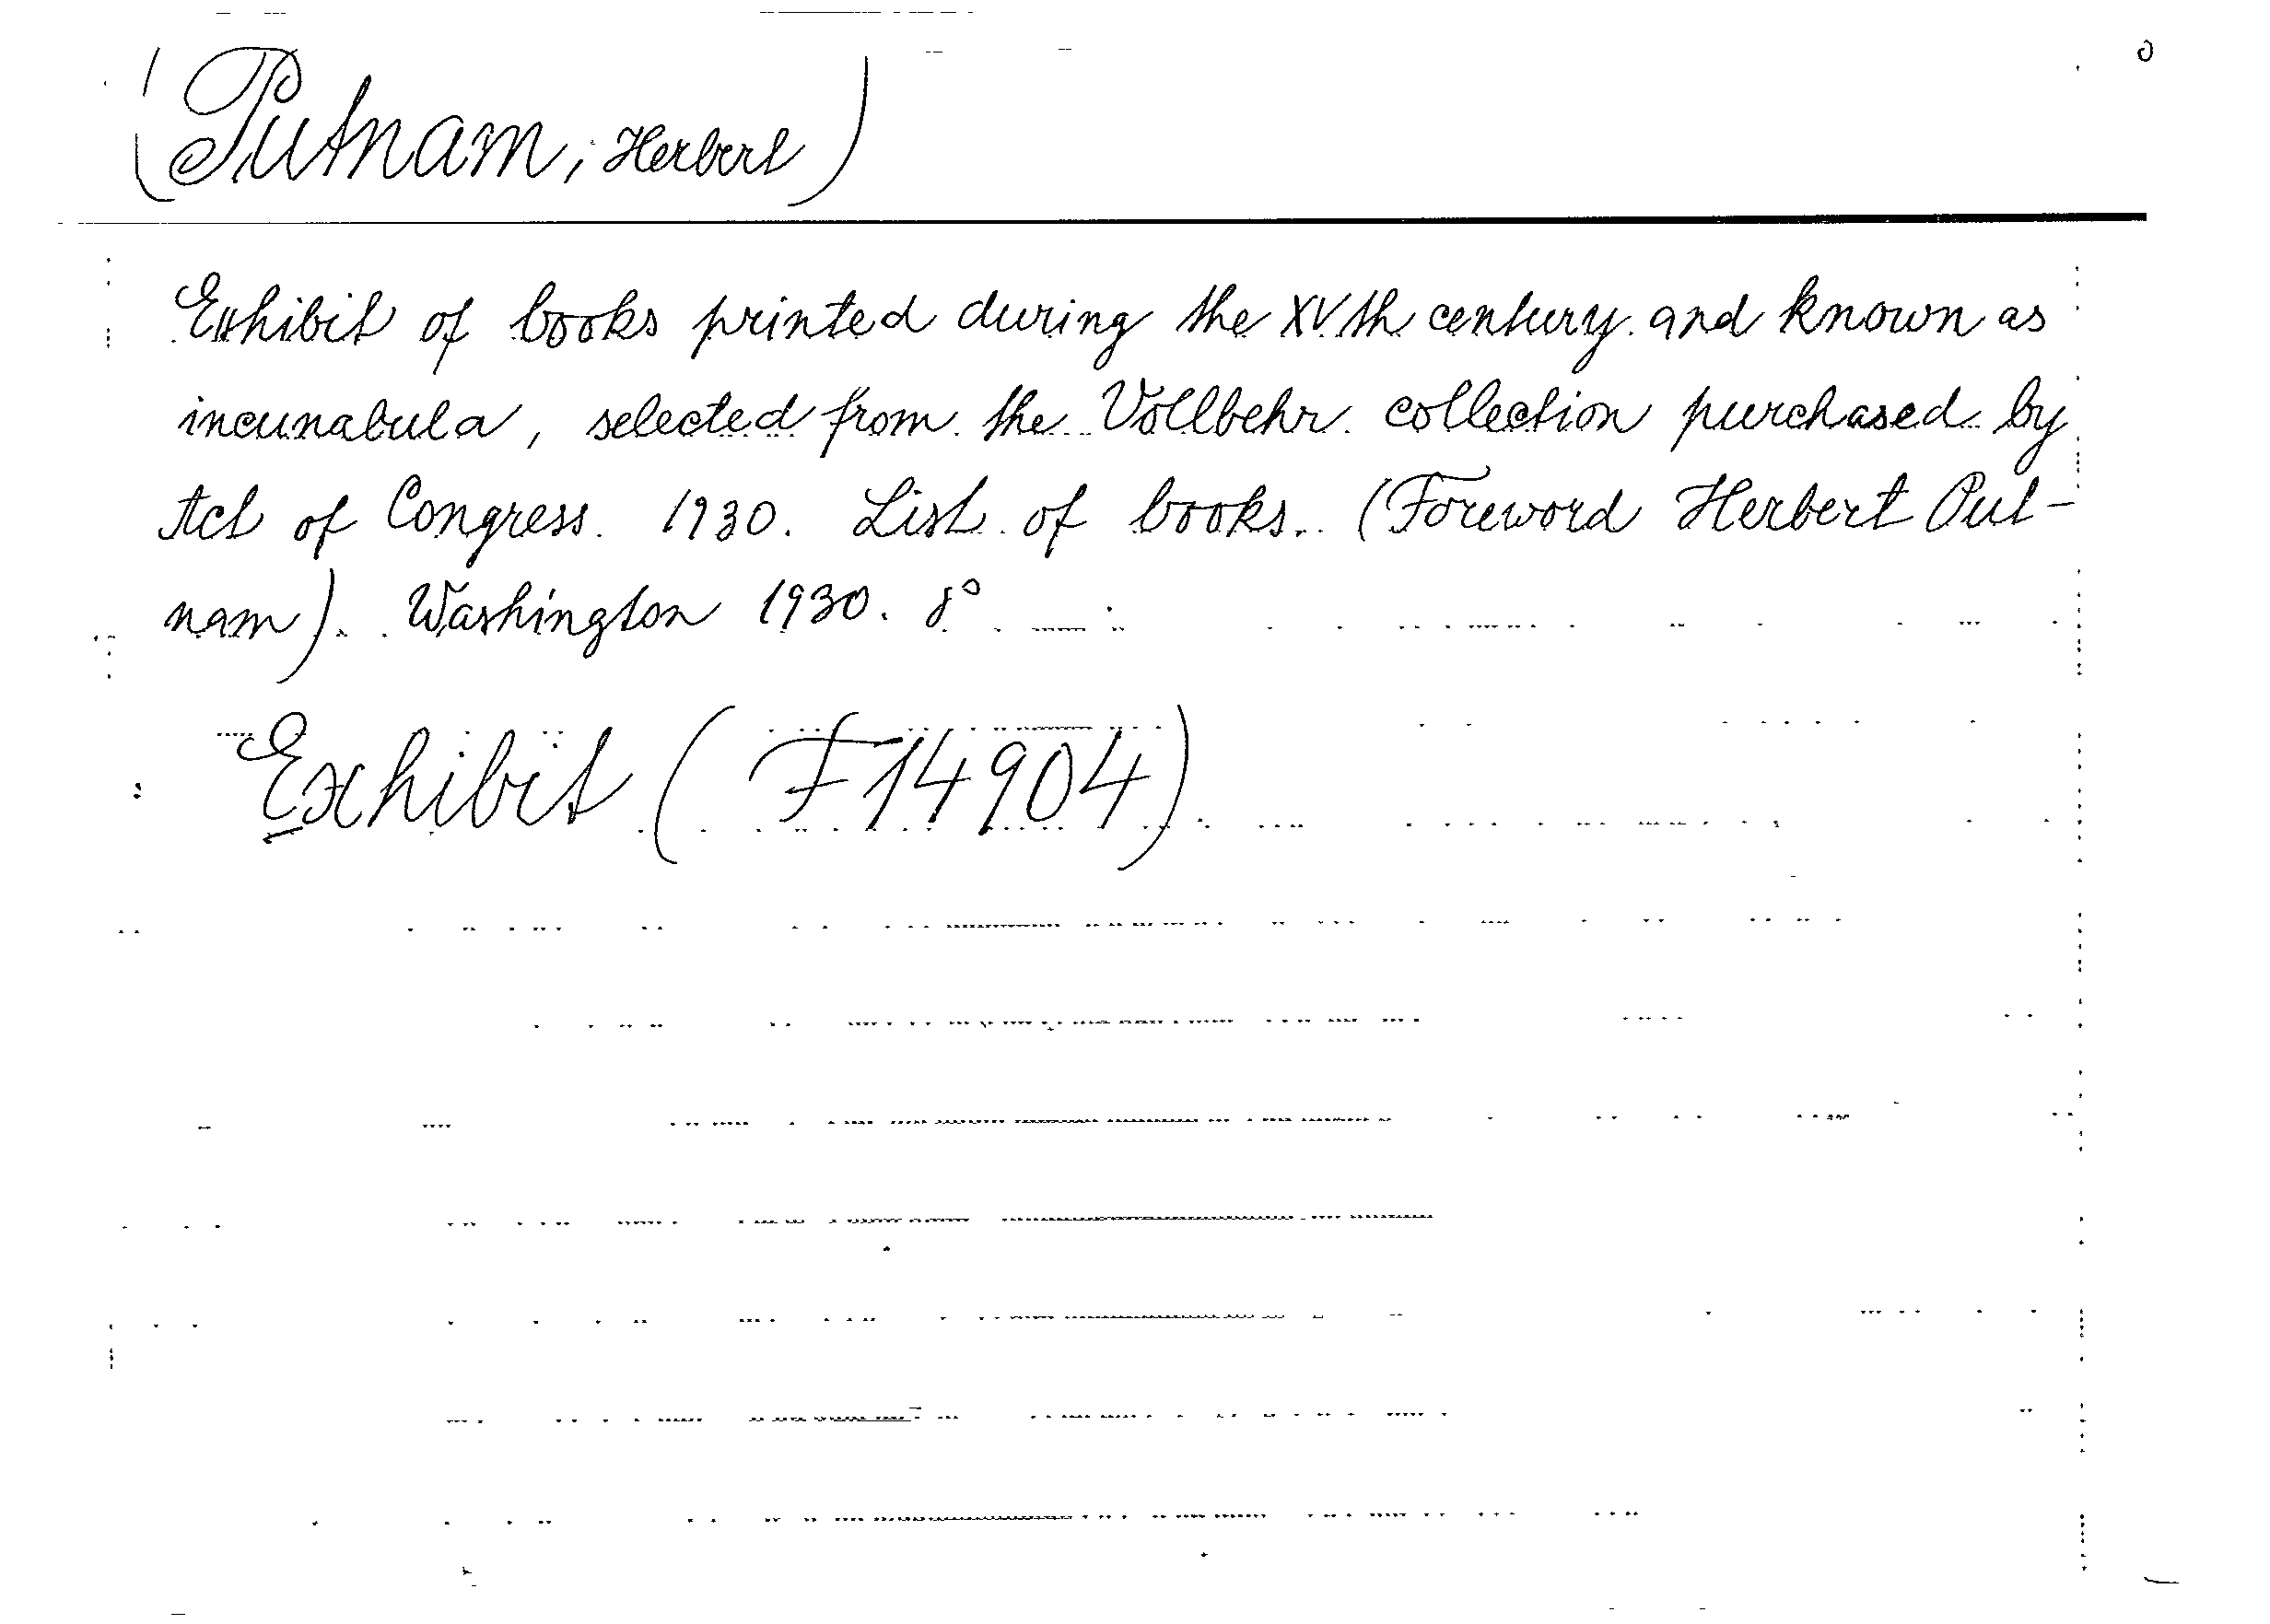 (Putnam, Herbert)
Exhibit of books printed during the XVth century and known as
incunabula, selected from the Vollbehr collection purchased by
Act of Congress. 1930. List of books. (Foreword Herbert Put-
nam). Washington 1930. 8°
Exhibit (F14904)